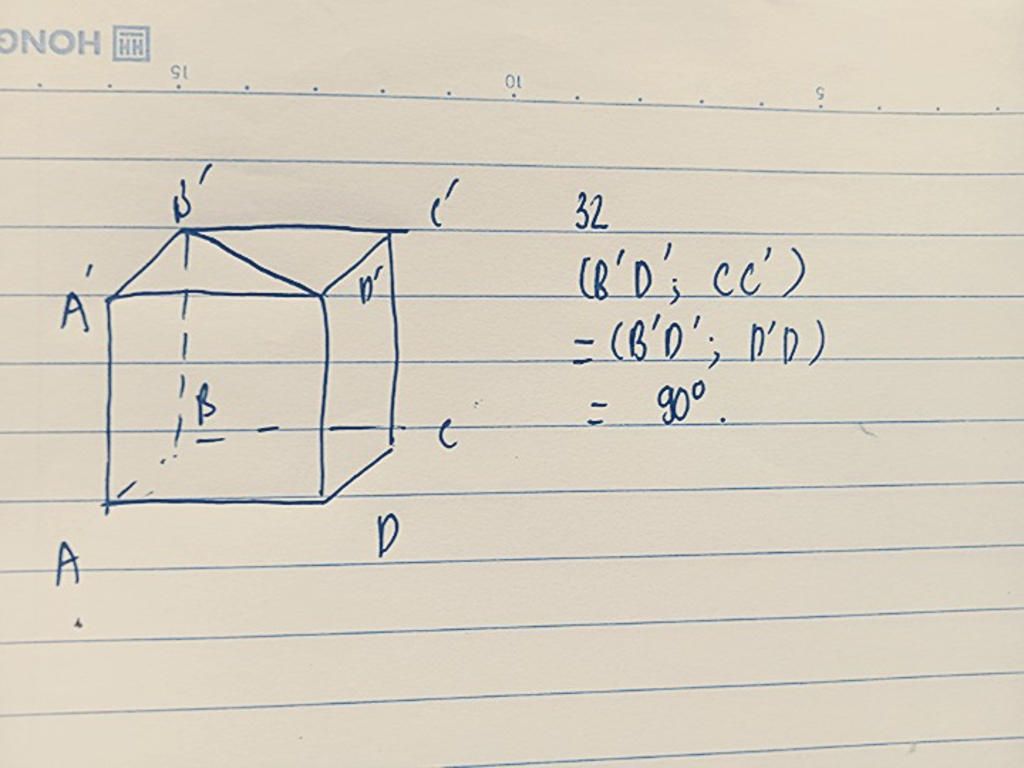 HONG
15 10 5
B'
C'
A'
D'
B
C
A
D
32
(B'D'; CC')
= (B'D'; D'D)
= 90°.